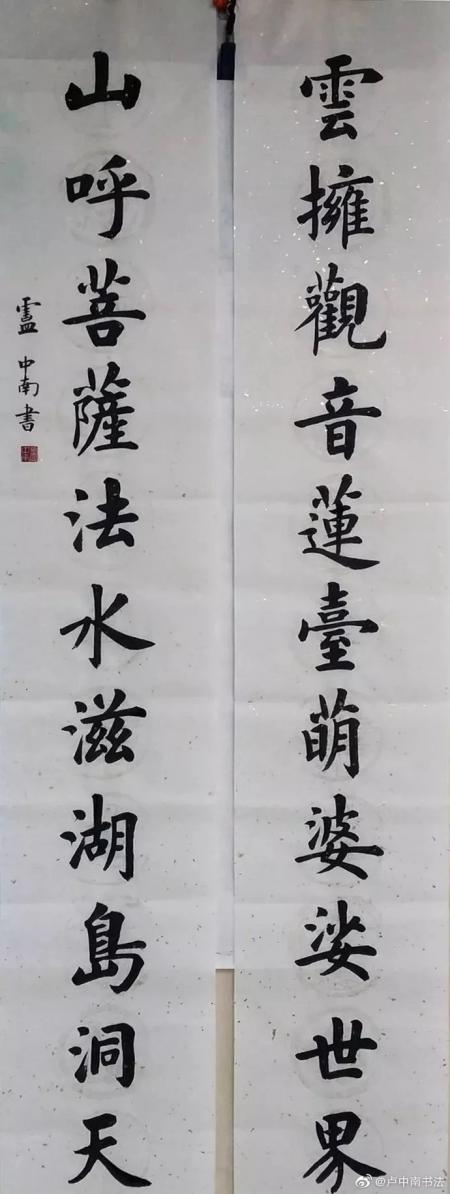 雲擁觀音蓮臺萌婆娑世界
山呼菩薩法水滋湖島洞天
盧中南書
@卢中南书法